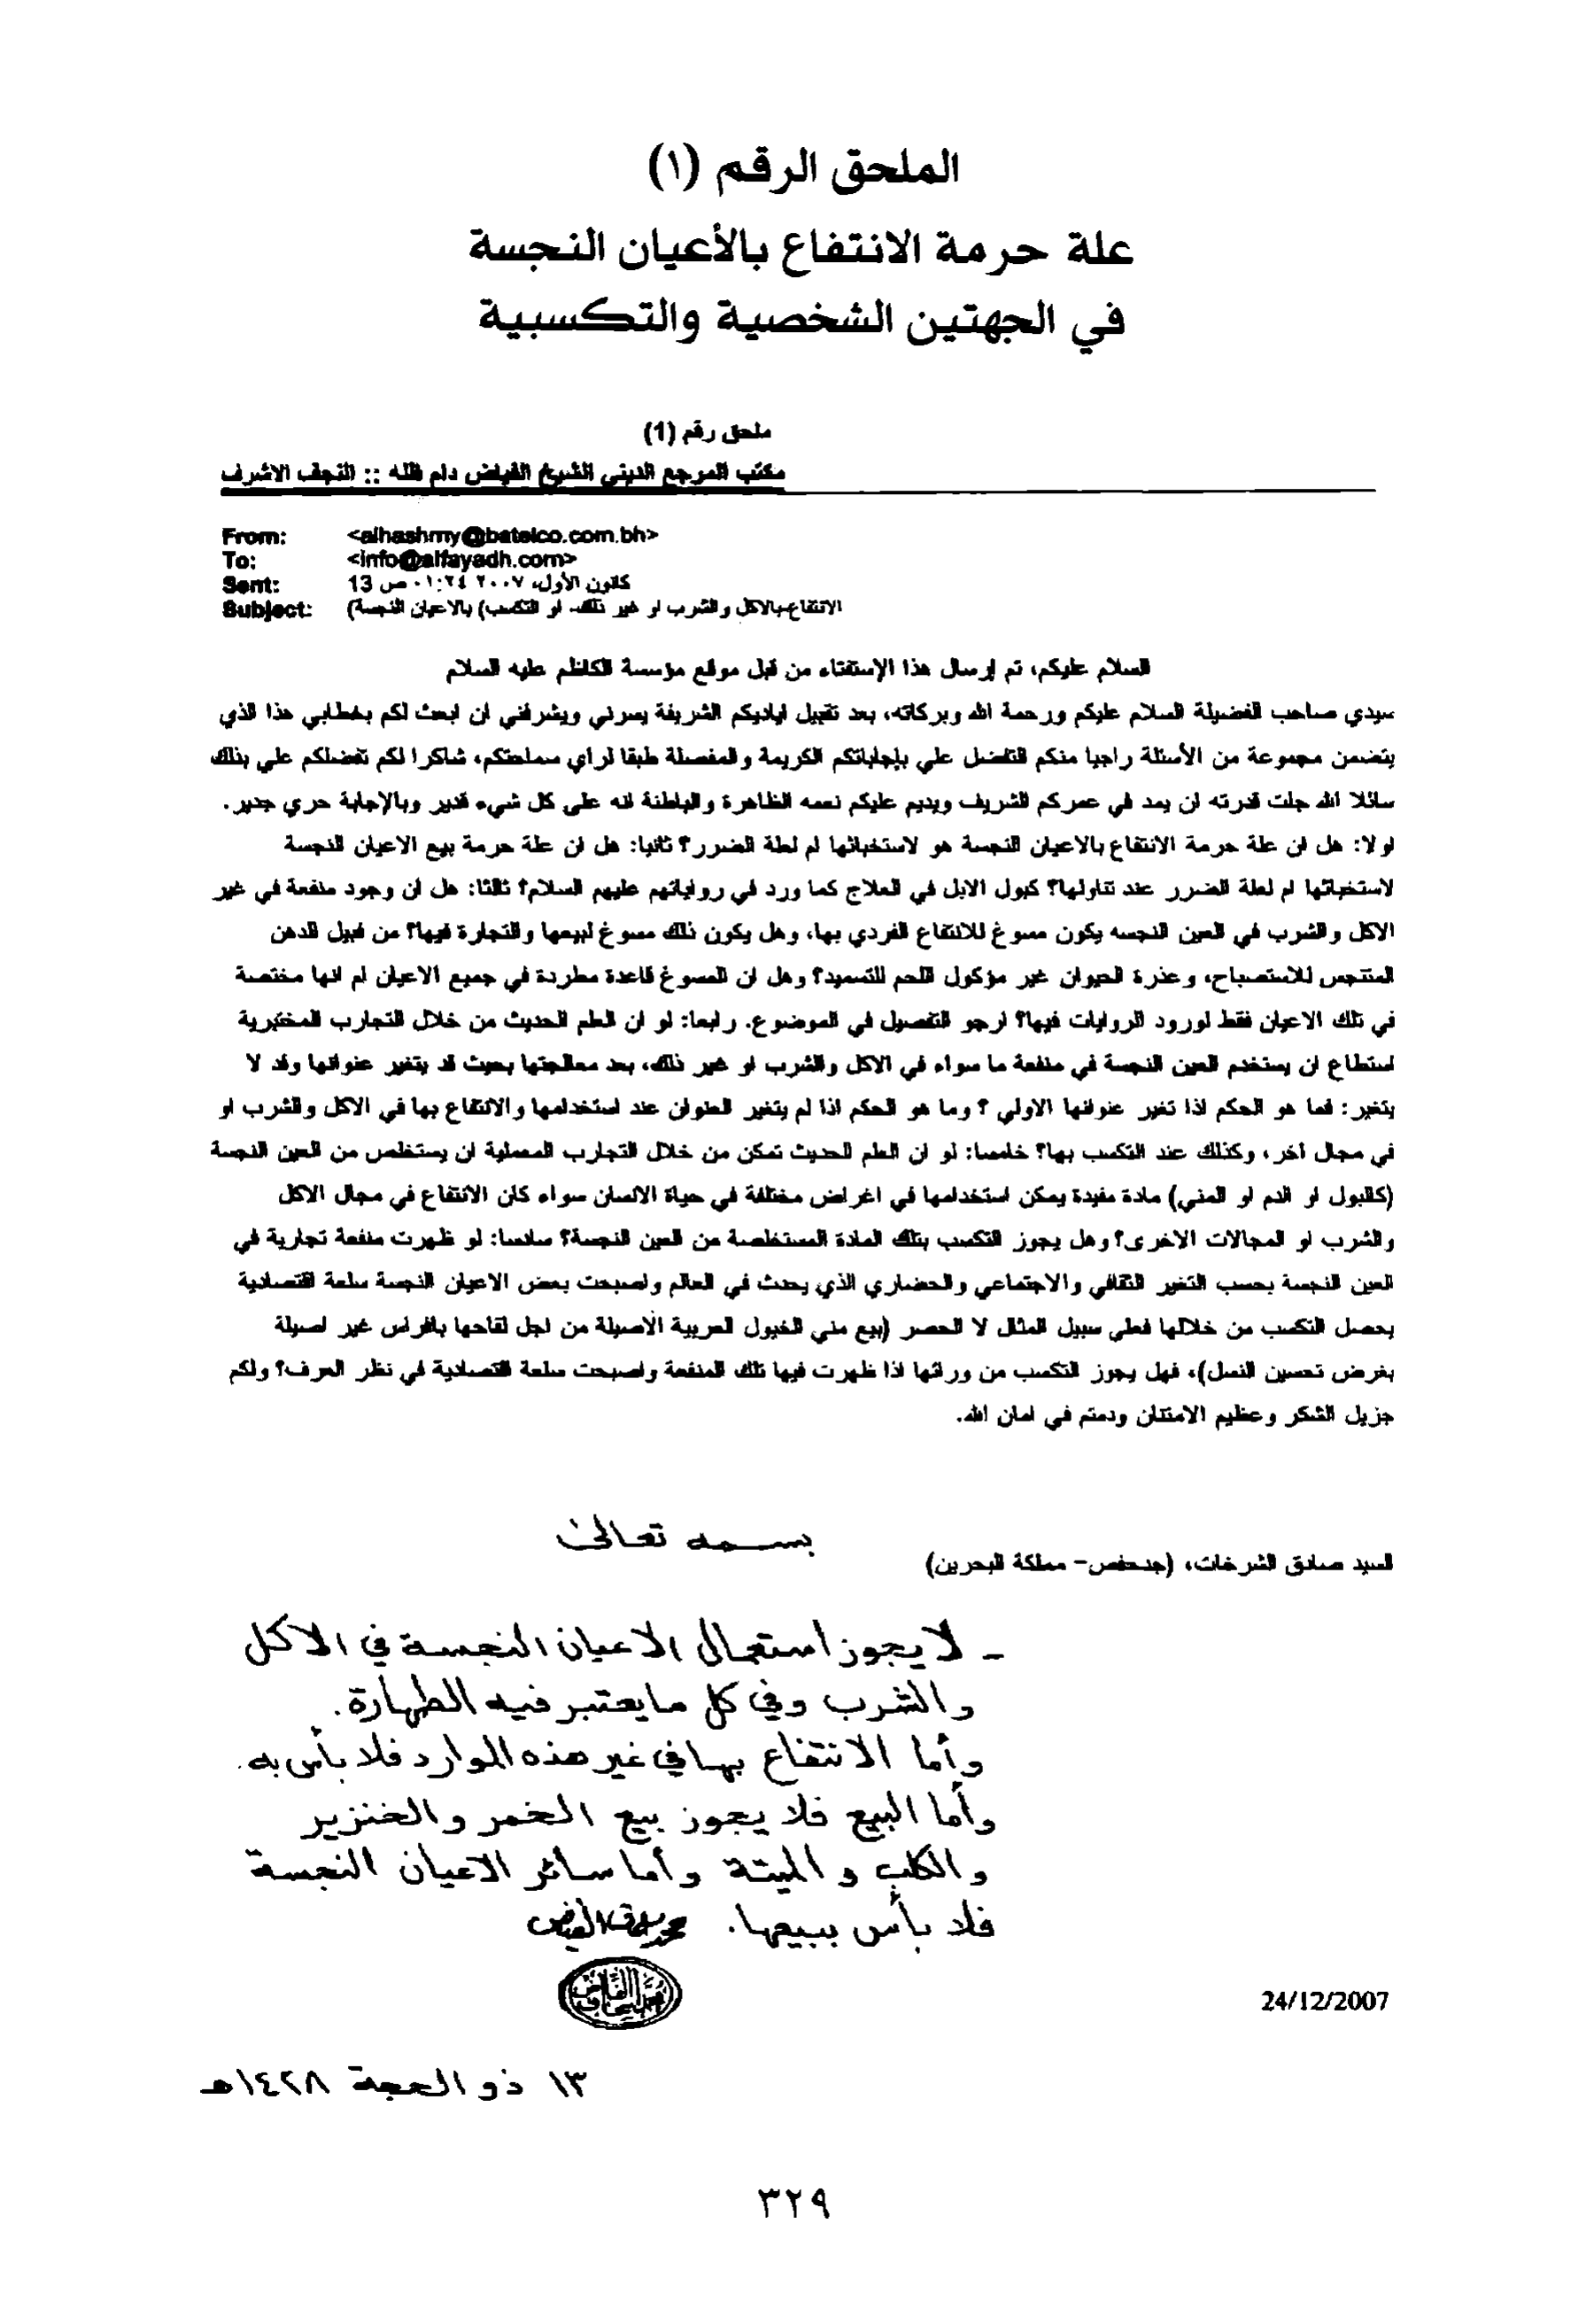 الملحق الرقم (١)
علة حرمة الانتفاع بالأعيان النجسة
في الجهتين الشخصية والتكسبية
ملحق رقم (1)
مكتب المرجع الديني الشيخ الفياض دام ظله :: النجف الاشرف
From: <alhashmy@batelco.com.bh>
To: <info@alfayadh.com>
Sent: 13 كانون الأول، ٢٠٠٧ ٠١:٢٤ ص
Subject: الانتفاع بالاكل والشرب او غير ذلك، او التكسب) بالاعيان النجسة)
السلام عليكم، تم إرسال هذا الإستفتاء من قبل موقع مؤسسة الكاظم عليه السلام
سيدي صاحب الفضيلة السلام عليكم ورحمة الله وبركاته، بعد تقبيل اياديكم الشريفة يسرني ويشرفني ان ابعث لكم بخطابي هذا الذي
يتضمن مجموعة من الأسئلة راجيا منكم التفضل علي بإجاباتكم الكريمة والمفصلة طبقا لراي سماحتكم، شاكرا لكم تفضلكم علي بذلك
سائلا الله جلت قدرته ان يمد في عمركم الشريف ويديم عليكم نعمه الظاهرة والباطنة انه على كل شيء قدير وبالإجابة حري جدير.
اولا: هل ان علة حرمة الانتفاع بالاعيان النجسة هو لاستخباثها ام لعلة الضرر؟ ثانيا: هل ان علة حرمة بيع الاعيان النجسة
لاستخباثها ام لعلة الضرر عند تناولها؟ كبول الابل في العلاج كما ورد في رواياتهم عليهم السلام؟ ثالثا: هل ان وجود منفعة في غير
الاكل والشرب في العين النجسه يكون مسوغ للانتفاع الفردي بها، وهل يكون ذلك مسوغ لبيعها والتجارة فيها؟ من قبيل الدهن
المتنجس للاستصباح، وعذرة الحيوان غير مؤكول اللحم للتسميد؟ وهل ان المسوغ قاعدة مطردة في جميع الاعيان ام انها مختصة
في تلك الاعيان فقط لورود الروايات فيها؟ ارجو التفصيل في الموضوع. رابعا: لو ان العلم الحديث من خلال التجارب المختبرية
استطاع ان يستخدم العين النجسة في منفعة ما سواء في الاكل والشرب او غير ذلك، بعد معالجتها بحيث قد يتغير عنوانها وقد لا
يتغير: فما هو الحكم اذا تغير عنوانها الاولي ؟ وما هو الحكم اذا لم يتغير العنوان عند استخدامها والانتفاع بها في الاكل والشرب او
في مجال اخر، وكذلك عند التكسب بها؟ خامسا: لو ان العلم الحديث تمكن من خلال التجارب المعملية ان يستخلص من العين النجسة
(كالبول او الدم او المني) مادة مفيدة يمكن استخدامها في اغراض مختلفة في حياة الانسان سواء كان الانتفاع في مجال الاكل
والشرب او المجالات الاخرى؟ وهل يجوز التكسب بتلك المادة المستخلصة من العين النجسة؟ سادسا: لو ظهرت منفعة تجارية في
العين النجسة بحسب التغير الثقافي والاجتماعي والحضاري الذي يحدث في العالم واصبحت بعض الاعيان النجسة سلعة اقتصادية
يحصل التكسب من خلالها فعلى سبيل المثال لا الحصر (بيع مني الخيول العربية الأصيلة من اجل لقاحها بافراس غير اصيلة
بغرض تحسين النسل)، فهل يجوز التكسب من ورائها اذا ظهرت فيها تلك المنفعة واصبحت سلعة اقتصادية في نظر العرف؟ ولكم
جزيل الشكر وعظيم الامتنان ودمتم في امان الله.
بسمه تعالىٰ
السيد صادق الشرخات، (جدحفص- مملكة البحرين)
- لا يجوز استعمال الاعيان النجسة في الاكل
والشرب وفي كل ما يعتبر فيه الطهارة.
وأما الانتفاع بها في غير هذه الموارد فلا بأس به.
وأما البيع فلا يجوز بيع الخمر والخنزير
والكلب والميتة وأما سائر الاعيان النجسة
فلا بأس ببيعها. محمد اسحاق الفياض
24/12/2007
١٣ ذو الحجة ١٤٢٨هـ
٣٢٩